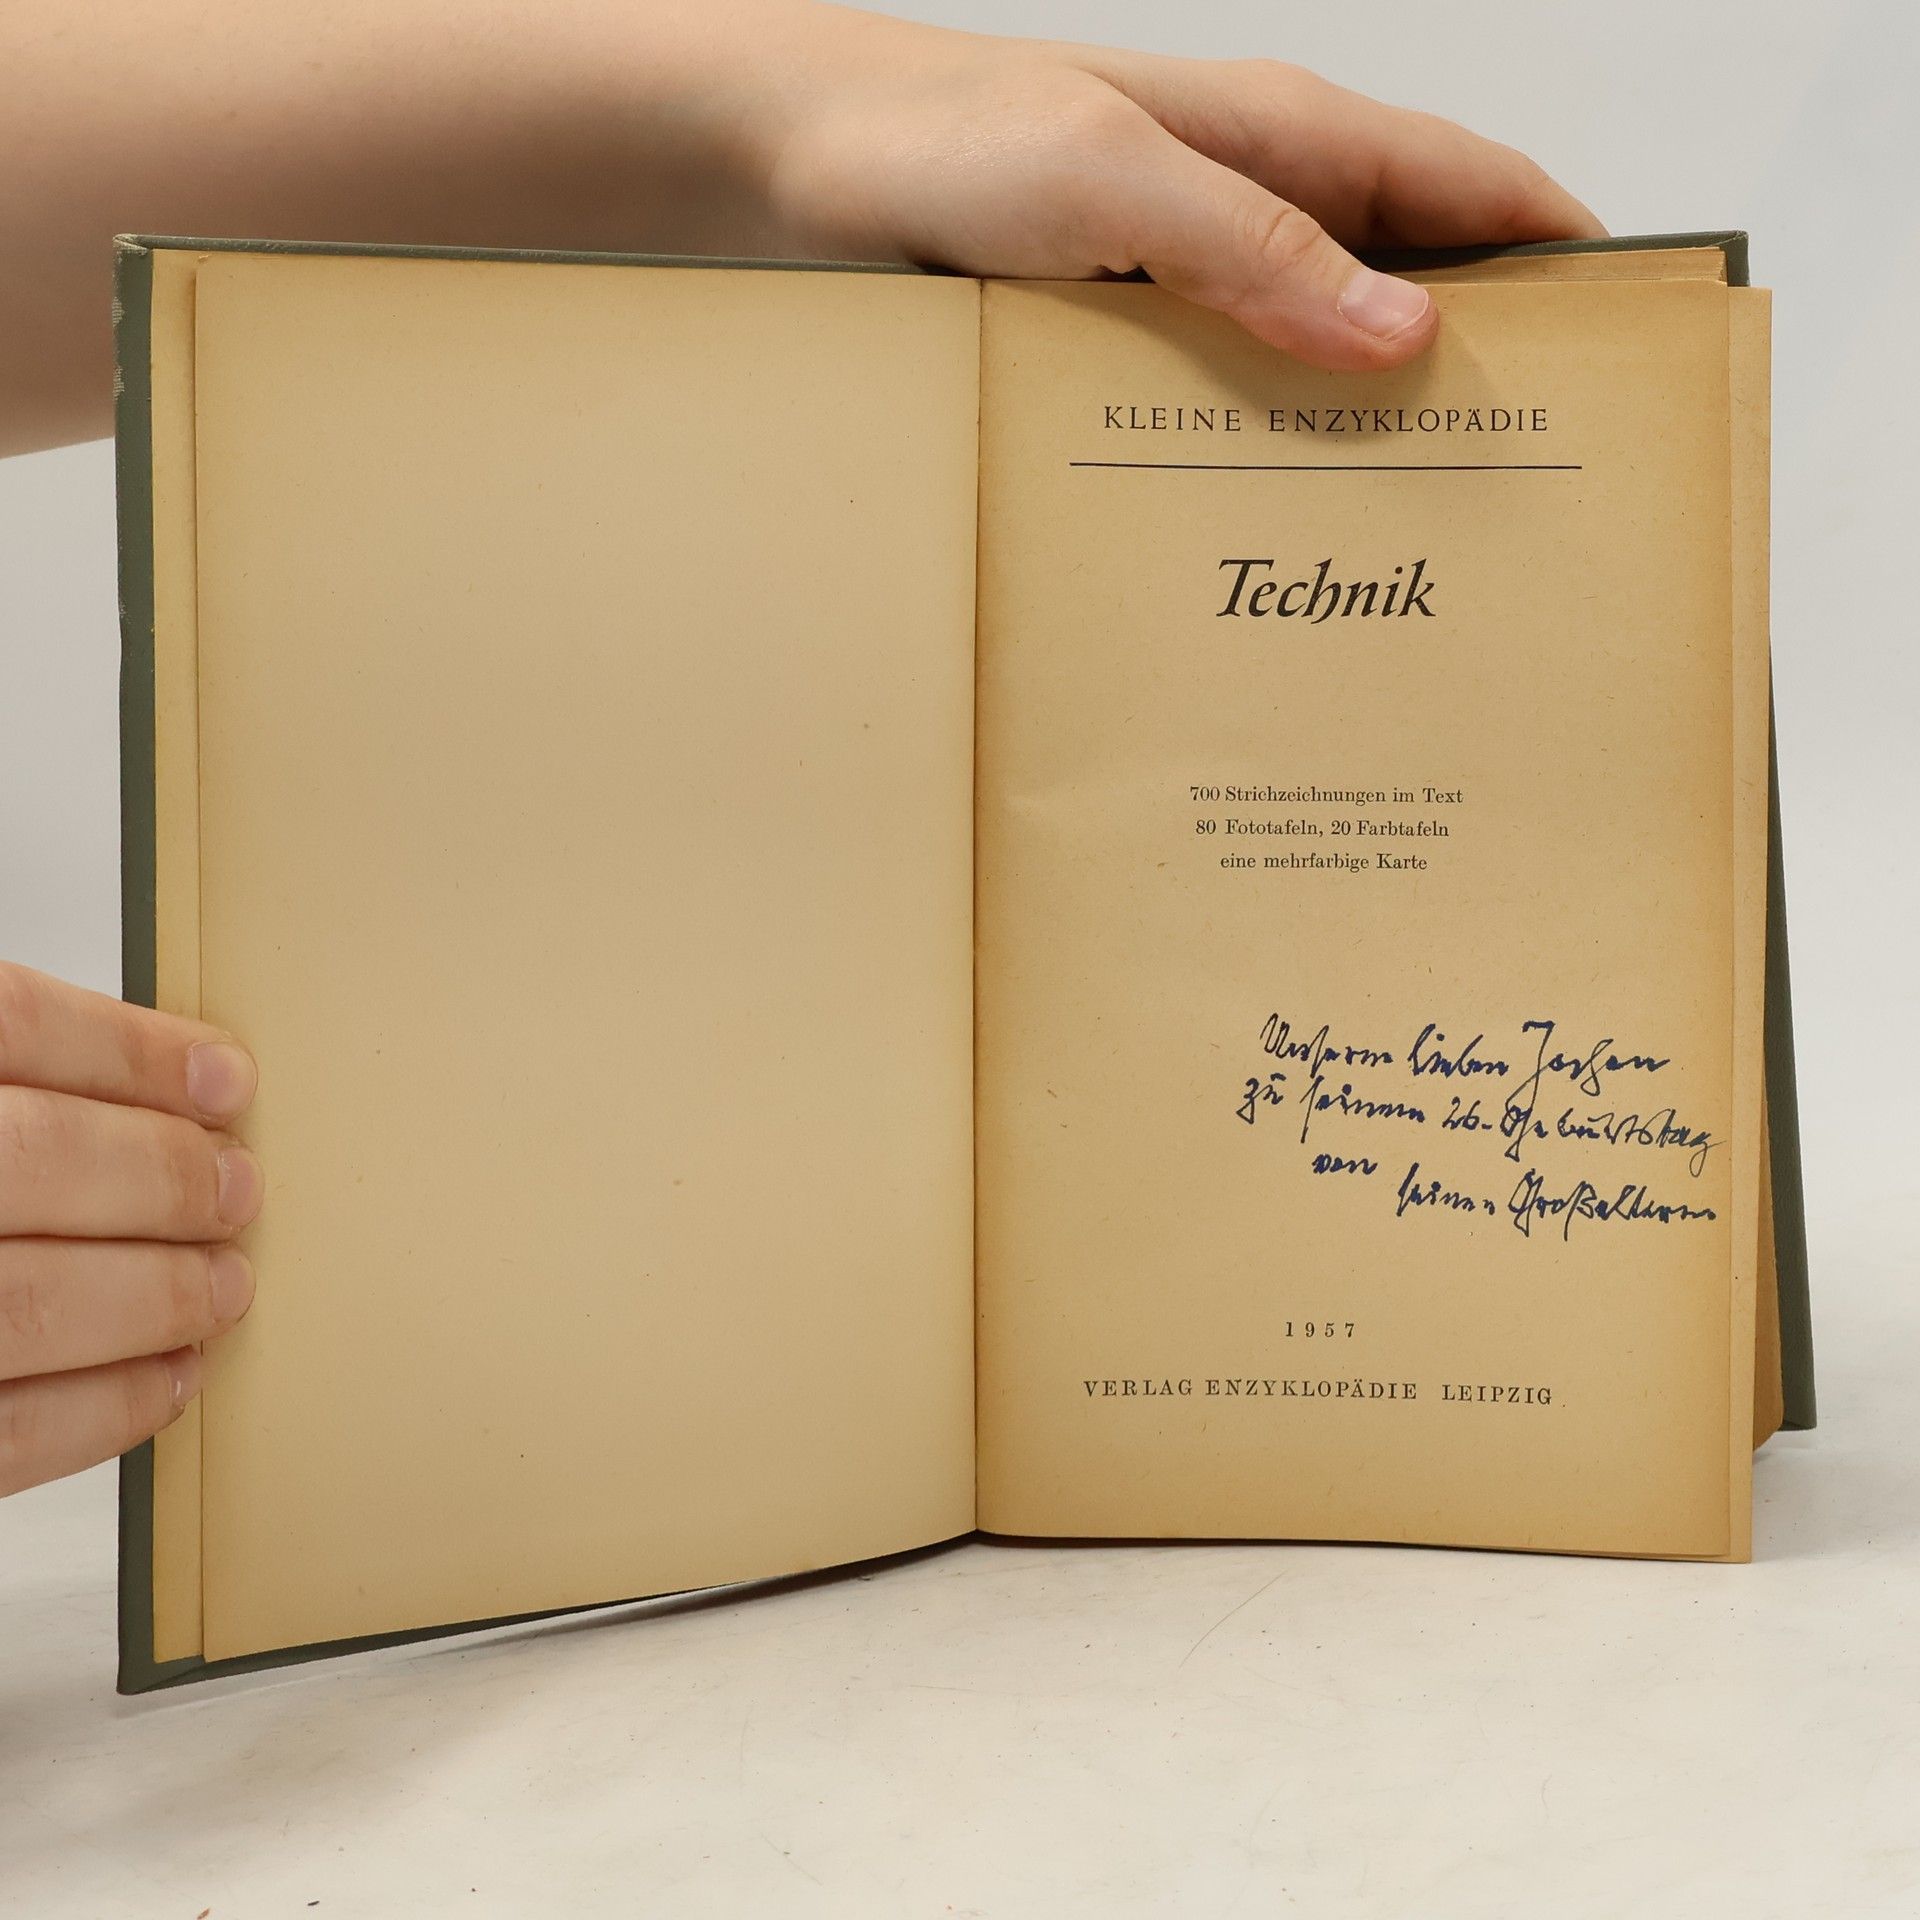 KLEINE ENZYKLOPÄDIE
Technik
700 Strichzeichnungen im Text
80 Fototafeln, 20 Farbtafeln
eine mehrfarbige Karte
Unserm lieben Jochen
zu seinem 26. Geburtstag
von
seinen Großeltern
1957
VERLAG ENZYKLOPÄDIE LEIPZIG